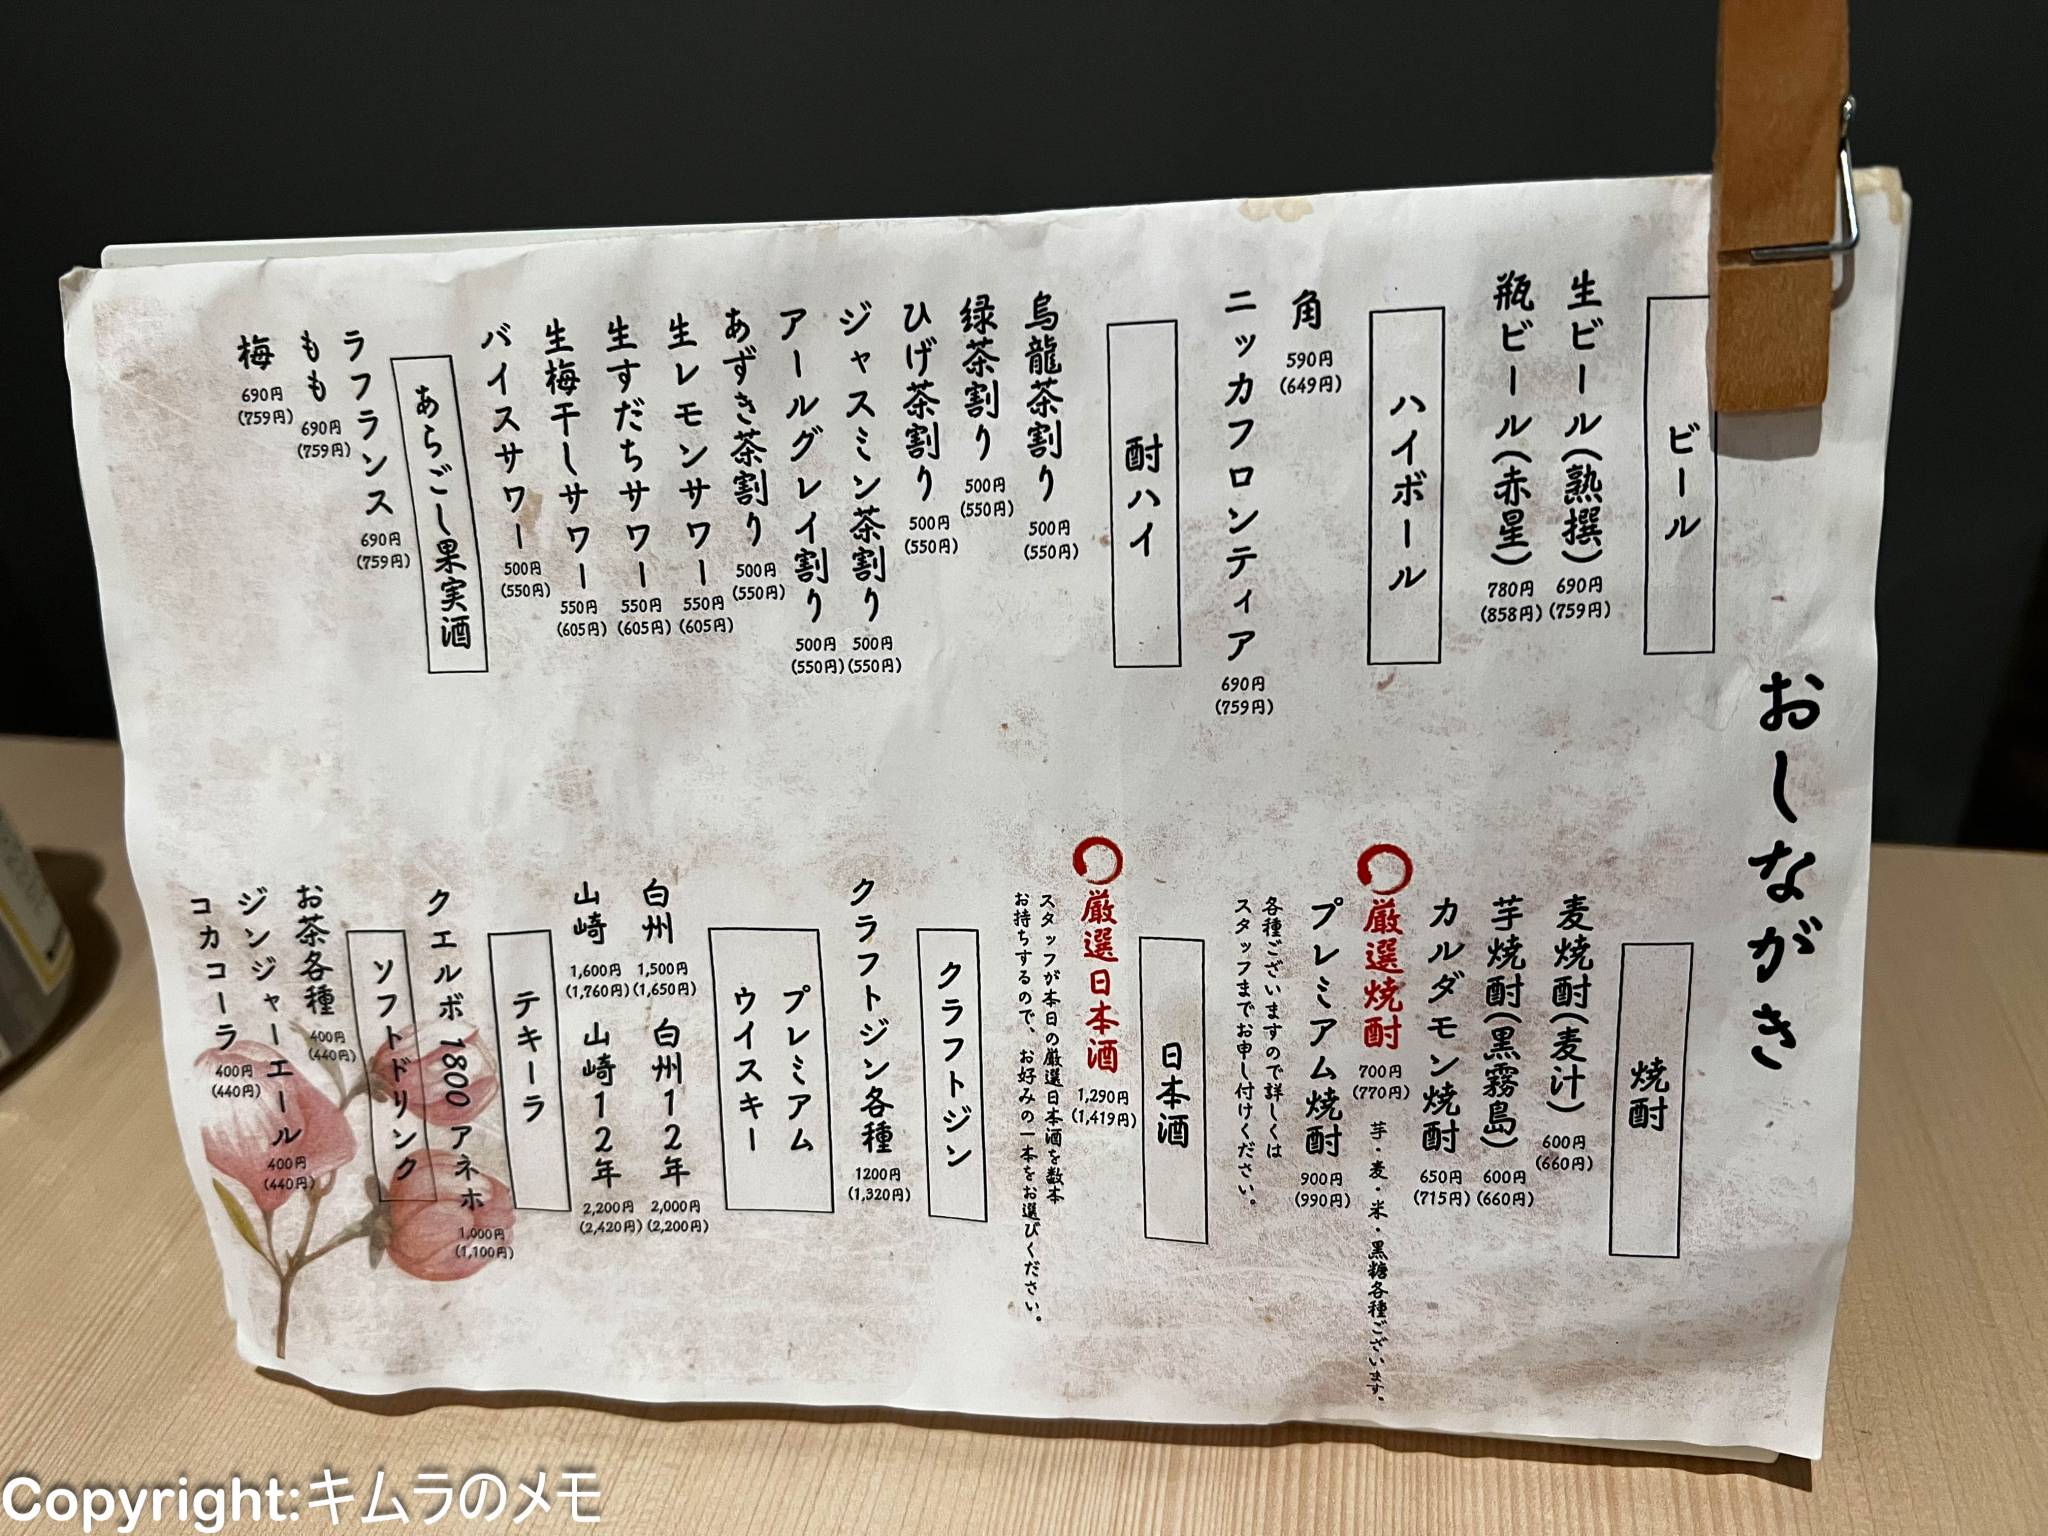 おしながき
ビール
生ビール(熟撰) 690円 (759円)
瓶ビール(赤星) 780円 (858円)
ハイボール
角 590円 (649円)
ニッカフロンティア 690円 (759円)
酎ハイ
烏龍茶割り 500円 (550円)
緑茶割り 500円 (550円)
ひげ茶割り 500円 (550円)
ジャスミン茶割り 500円 (550円)
アールグレイ割り 500円 (550円)
あずき茶割り 500円 (550円)
生レモンサワー 550円 (605円)
生すだちサワー 550円 (605円)
生梅干しサワー 550円 (605円)
バイスサワー 500円 (550円)
あらごし果実酒
ラフランス 690円 (759円)
もも 690円 (759円)
梅 690円 (759円)
焼酎
麦焼酎(麦汁) 600円 (660円)
芋焼酎(黒霧島) 600円 (660円)
カルダモン焼酎 650円 (715円)
厳選焼酎 700円 (770円) 芋・麦・米・黒糖各種ございます。
プレミアム焼酎 900円 (990円)
各種ございますので詳しくは
スタッフまでお申し付けください。
日本酒
厳選日本酒 1,290円 (1,419円)
スタッフが本日の厳選日本酒を数本
お持ちするので、お好みの一本をお選びください。
クラフトジン
クラフトジン各種 1200円 (1,320円)
プレミアム
ウイスキー
白州 1,500円 (1,650円) 白州12年 2,000円 (2,200円)
山崎 1,600円 (1,760円) 山崎12年 2,200円 (2,420円)
テキーラ
クエルボ 1800 アネホ 1,000円 (1,100円)
ソフトドリンク
お茶各種 400円 (440円)
ジンジャーエール 400円 (440円)
コカコーラ 400円 (440円)
Copyright:キムラのメモ